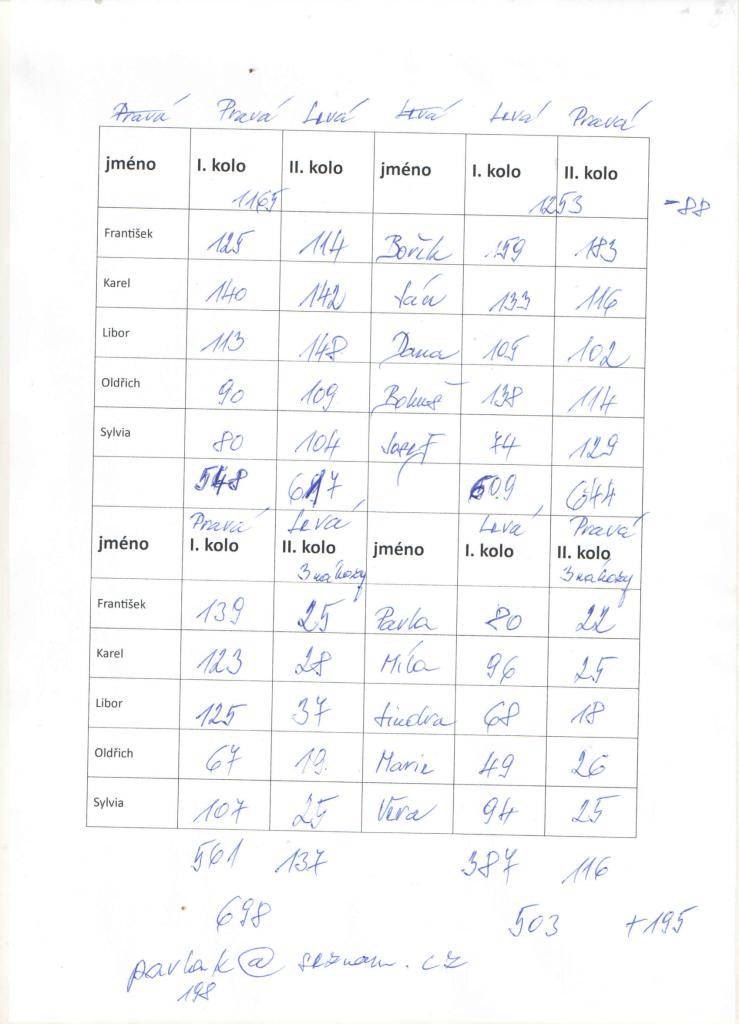 Pravá Pravá Levá Levá Levá Pravá
jméno I. kolo II. kolo jméno I. kolo II. kolo
1165 1253 -88
František 125 114 Bořík 159 183
Karel 140 142 Ján 133 116
Libor 113 148 Dana 105 102
Oldřich 90 109 Bohuš 138 114
Sylvia 80 104 Josef 74 129
548 617 609 644
Pravá Levá Levá Pravá
jméno I. kolo II. kolo jméno I. kolo II. kolo
3 náhozy 3 náhozy
František 139 25 Pavla 80 22
Karel 123 28 Míla 96 25
Libor 125 37 Jindra 68 18
Oldřich 67 19 Marie 49 26
Sylvia 107 25 Věra 94 25
561 137 387 116
698 503 +195
pavlak@seznam.cz
198